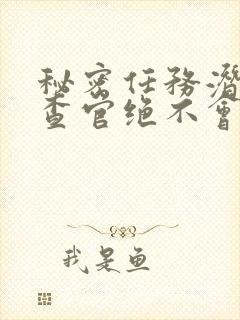 秘密任務潛
查官绝不會
我是鱼